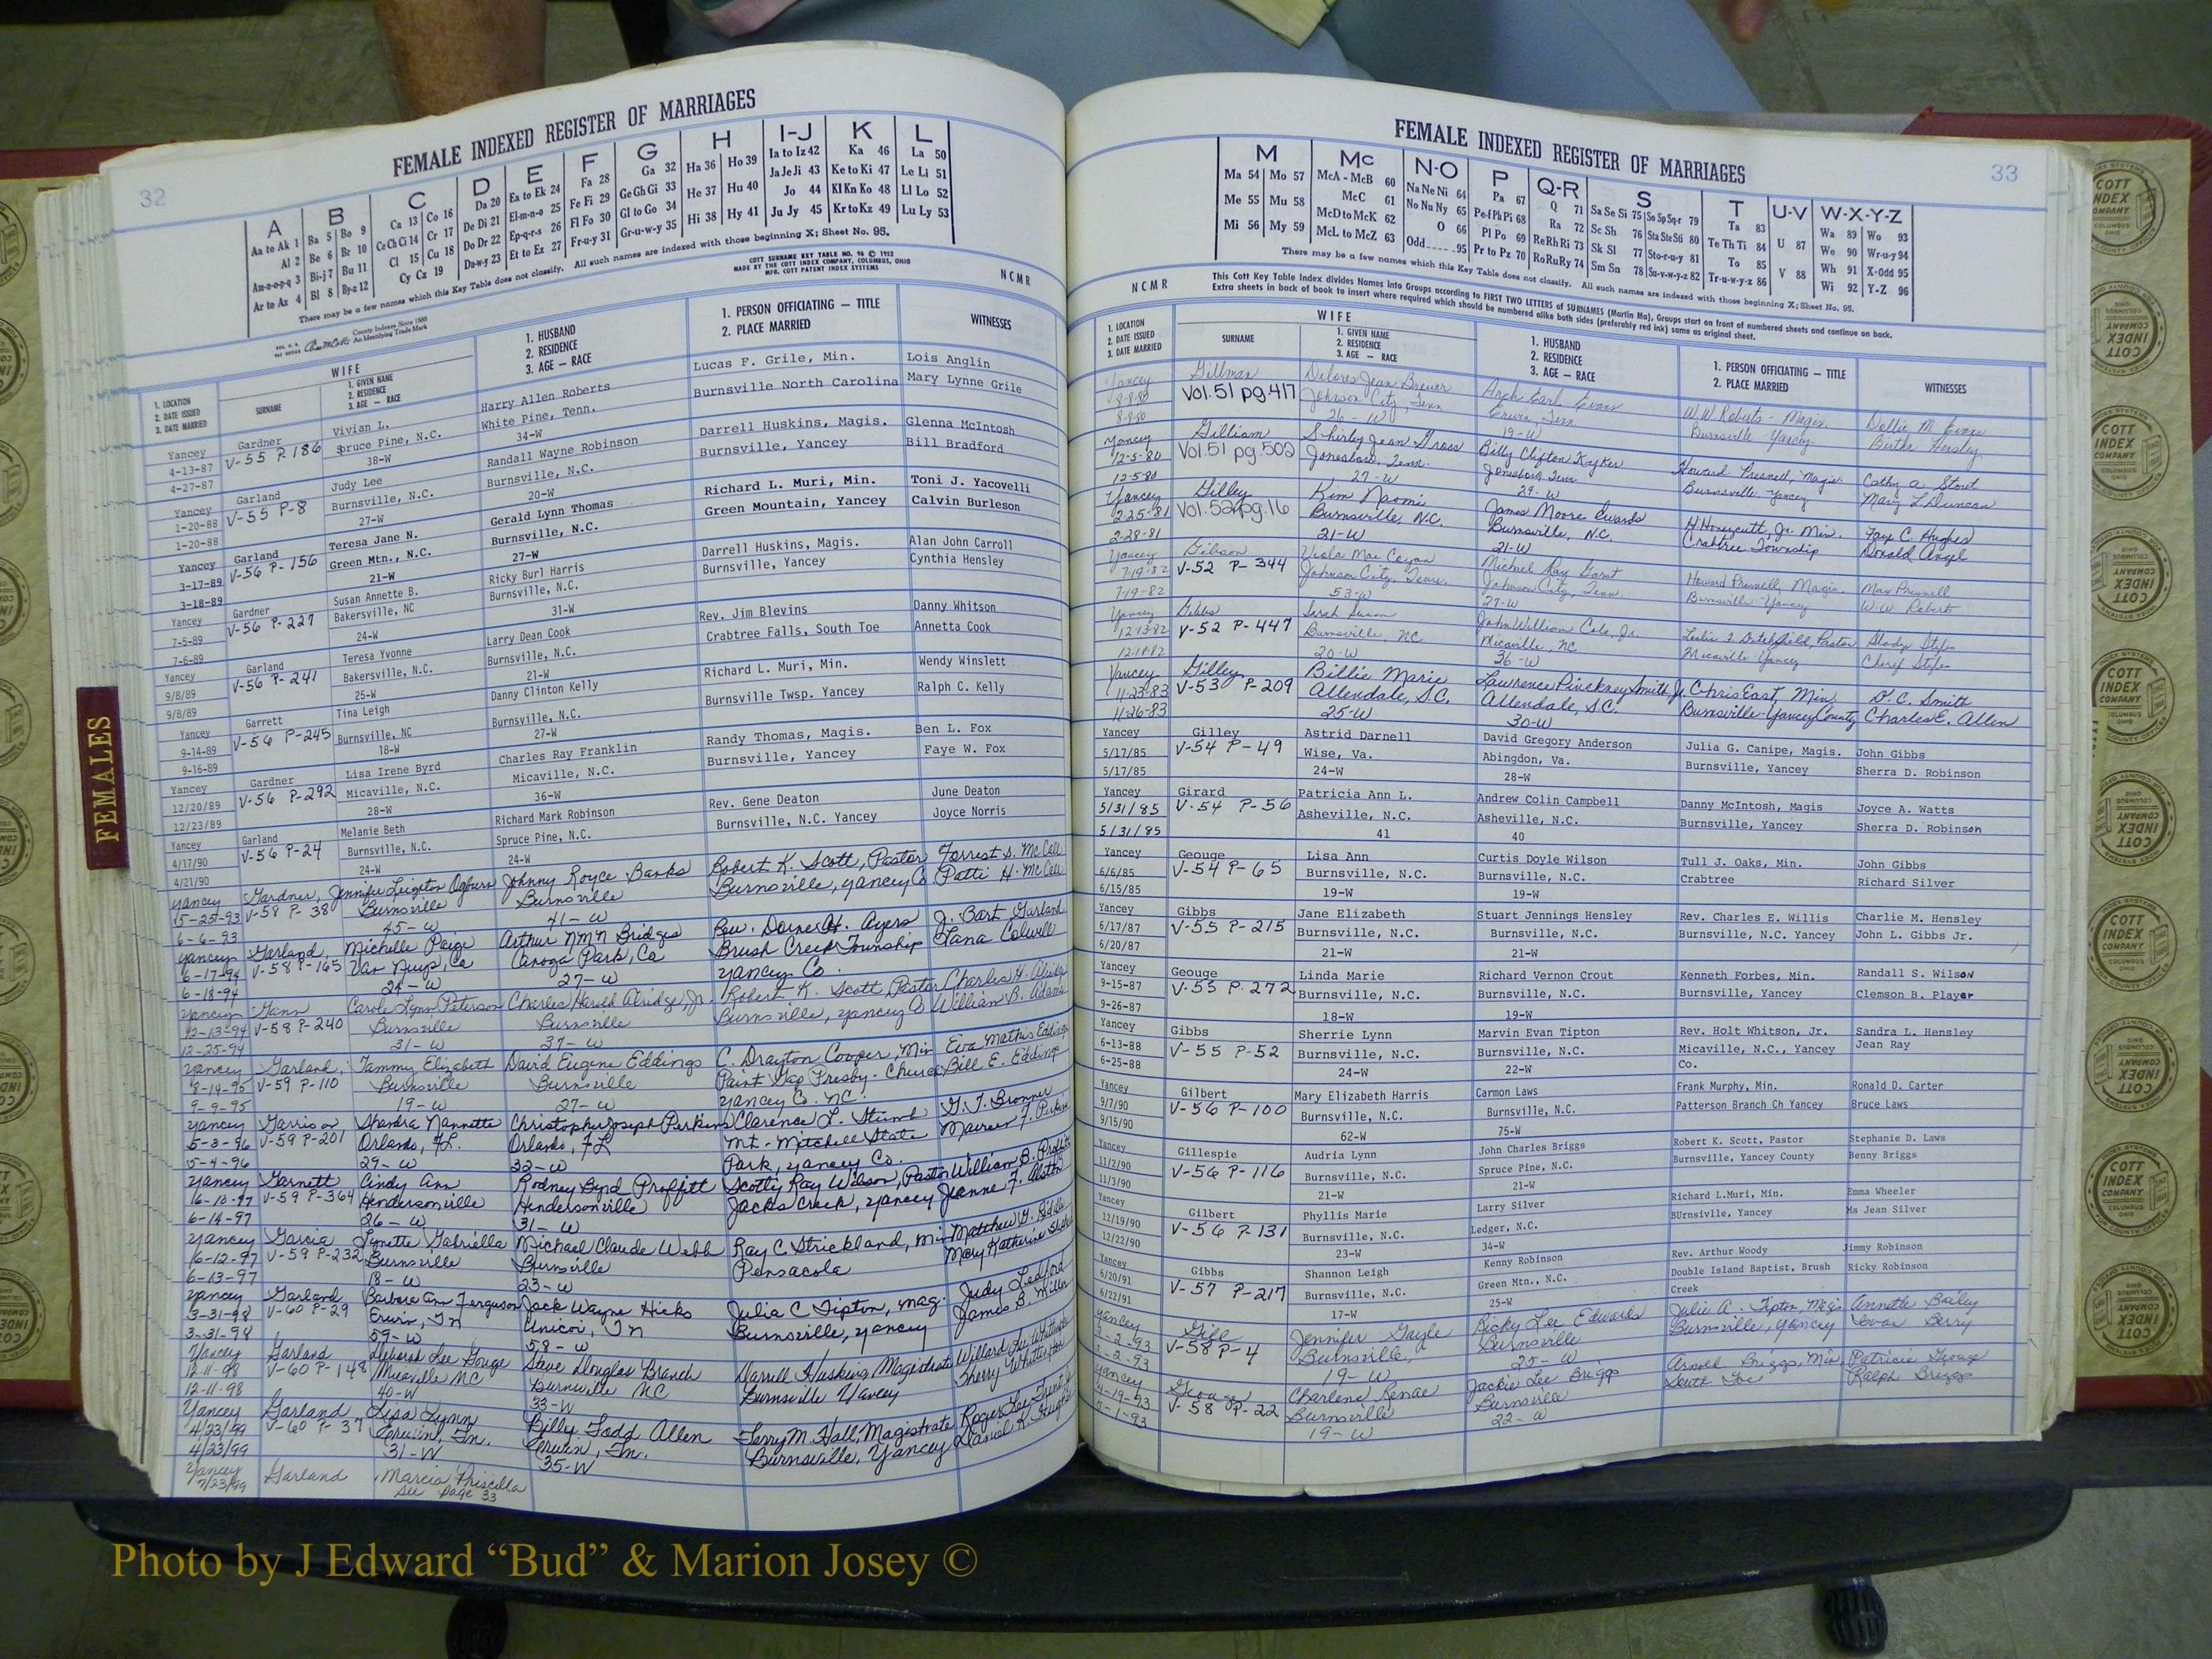 32
FEMALE INDEXED REGISTER OF MARRIAGES
A
Aa to Ak 1
Al 2
Am-n-o-p-q 3
Ar to Az 4
B
Ba 5 Bo 9
Be 6 Br 10
Bi-j 7 Bu 11
Bl 8 By-z 12
C
Ca 13 Co 16
Ce Ch Ci 14 Cr 17
Cl 15 Cu 18
Cy Cz 19
D
Da 20
De Di 21
Do Dr 22
Du-w-y 23
E
Ea to Ek 24
El-m-n-o 25
Ep-q-r-s 26
Et to Ez 27
F
Fa 28
Fe Fi 29
Fl Fo 30
Fr-u-y 31
G
Ga 32
Ge Gh Gi 33
Gl to Go 34
Gr-u-w-y 35
H
Ha 36 Ho 39
He 37 Hu 40
Hi 38 Hy 41
I-J
Ia to Iz 42
Ja Je Ji 43
Jo 44
Ju Jy 45
K
Ka 46
Ke to Ki 47
Kl Kn Ko 48
Kr to Kz 49
L
La 50
Le Li 51
Ll Lo 52
Lu Ly 53
There may be a few names which this Key Table does not classify. All such names are indexed with those beginning X; Sheet No. 95.
County Indexes Since 1888
An Identifying Trade Mark
COTT SURNAME KEY TABLE NO. 96 © 1952
MADE BY THE COTT INDEX COMPANY, COLUMBUS, OHIO
MFG. COTT PATENT INDEX SYSTEMS
NCMR
1. LOCATION
2. DATE ISSUED
3. DATE MARRIED
WIFE
SURNAME
1. GIVEN NAME
2. RESIDENCE
3. AGE — RACE
1. HUSBAND
2. RESIDENCE
3. AGE — RACE
1. PERSON OFFICIATING — TITLE
2. PLACE MARRIED
WITNESSES
Yancey Gardner Vivian L. Harry Allen Roberts Lucas F. Grile, Min. Lois Anglin
4-13-87 V-55 P.186 Spruce Pine, N.C. White Pine, Tenn. Burnsville North Carolina Mary Lynne Grile
4-27-87 38-W 34-W
Yancey Garland Judy Lee Randall Wayne Robinson Darrell Huskins, Magis. Glenna McIntosh
1-20-88 V-55 P-8 Burnsville, N.C. Burnsville, N.C. Burnsville, Yancey Bill Bradford
1-20-88 27-W 20-W
Yancey Garland Teresa Jane N. Gerald Lynn Thomas Richard L. Muri, Min. Toni J. Yacovelli
3-17-89 V-56 P-156 Green Mtn., N.C. Burnsville, N.C. Green Mountain, Yancey Calvin Burleson
3-18-89 21-W 27-W
Yancey Gardner Susan Annette B. Ricky Burl Harris Darrell Huskins, Magis. Alan John Carroll
7-5-89 V-56 P-227 Bakersville, NC Burnsville, N.C. Burnsville, Yancey Cynthia Hensley
7-6-89 24-W 31-W
Yancey Garland Teresa Yvonne Larry Dean Cook Rev. Jim Blevins Danny Whitson
9/8/89 V-56 P-241 Bakersville, N.C. Burnsville, N.C. Crabtree Falls, South Toe Annetta Cook
9/8/89 25-W 21-W
Yancey Garrett Tina Leigh Danny Clinton Kelly Richard L. Muri, Min. Wendy Winslett
9-14-89 V-56 P-245 Burnsville, NC Burnsville, N.C. Burnsville Twsp. Yancey Ralph C. Kelly
9-16-89 18-W 27-W
Yancey Gardner Lisa Irene Byrd Charles Ray Franklin Randy Thomas, Magis. Ben L. Fox
12/20/89 V-56 P-292 Micaville, N.C. Micaville, N.C. Burnsville, Yancey Faye W. Fox
12/23/89 28-W 36-W
Yancey Garland Melanie Beth Richard Mark Robinson Rev. Gene Deaton June Deaton
4/17/90 V-56 P-24 Burnsville, N.C. Spruce Pine, N.C. Burnsville, N.C. Yancey Joyce Norris
4/21/90 24-W 24-W
Yancey Gardner, Jennifer Leighton Ogburn Johnny Royce Banks Robert K. Scott, Pastor Forrest S. McCall
5-25-93 V-58 P-38 Burnsville Burnsville Burnsville, Yancey Co Patti H. McCall
6-6-93 45-W 41-W
Yancey Garland, Michelle Paige Arthur NMN Bridges J. Bart Garland
6-17-94 V-58 P-165 Van Nuys, Ca Canoga Park, Ca Brush Creek Township Lana Colwell
6-18-94 24-W 27-W Yancey Co.
Yancey Gann Carole Lynn Peterson Charles Harold Aldridge Jr. Robert K. Scott Pastor Charles H. Aldridge
12-13-94 V-58 P-240 Burnsville Burnsville Burnsville, Yancey Co William B. Adams
12-25-94 31-W 37-W
Yancey Garland, Tammy Elizabeth David Eugene Eddings C. Drayton Cooper, Min Eva Mathis Eddings
8-14-95 V-59 P-110 Burnsville Burnsville Paint Gap Presby. Church Bill E. Eddings
9-9-95 19-W 27-W Yancey Co. NC.
Yancey Garrison Shandra Nannette Christopher Joseph Perkins Clarence L. G. T. Bronner
5-3-96 V-59 P-201 Orlando, FL. Orlando, FL Mt. Mitchell State Maureen F. Perkins
5-4-96 29-W 32-W Park, Yancey Co.
Yancey Garnett Cindy Ann Rodney Byrd Proffitt Scotty Ray Wilson, Pastor William B. Proffitt
6-10-97 V-59 P-364 Hendersonville Hendersonville Jacks Creek, Yancey Jeanne F. Alston
6-14-97 26-W 31-W
Yancey Garcia Lynette Gabriella Michael Claude Webb Ray C Strickland, Min Matthew G. Riddle
6-12-97 V-59 P-232 Burnsville Burnsville Pensacola Mary Katherine
6-13-97 18-W 23-W
Yancey Garland Barbara Ann Ferguson Jack Wayne Hicks Julia C Tipton, Mag. Judy Ledford
3-31-98 V-60 P-29 Erwin, Tn Unicoi, Tn Burnsville, Yancey James B. Miller
3-31-98 59-W 58-W
Yancey Garland Deborah Lee Gouge Steve Douglas Branch Darrell Huskins, Magistrate Willard
12-11-98 V-60 P-148 Micaville NC Burnsville NC Burnsville Yancey Sherry
12-11-98 40-W 33-W
Yancey Garland Lisa Lynn Billy Todd Allen Terry M. Hall, Magistrate Roger Lee
4/23/99 V-60 P-37 Erwin, Tn. Erwin, Tn. Burnsville, Yancey Daniel K.
4/23/99 31-W 35-W
Yancey Garland Marcia Priscilla
7/23/99 See Page 33
FEMALES
33
FEMALE INDEXED REGISTER OF MARRIAGES
M
Ma 54 Mo 57
Me 55 Mu 58
Mi 56 My 59
Mc
McA - McB 60
McC 61
McD to McK 62
McL to McZ 63
N-O
Na Ne Ni 64
No Nu Ny 65
O 66
Odd 95
P
Pa 67
Pe-f Ph Pi 68
Pl Po 69
Pr to Pz 70
Q-R
Q 71
Ra 72
Re Rh Ri 73
Ro Ru Ry 74
S
Sa Se Si 75 So Sp Sq-r 79
Sc Sh 76 Sta Ste Sti 80
Sk Sl 77 Sto-r-u-y 81
Sm Sn 78 Su-v-w-y-z 82
T
Ta 83
Te Th Ti 84
To 85
Tr-u-w-y-z 86
U-V
U 87
V 88
W-X-Y-Z
Wa 89 Wo 93
We 90 Wr-u-y 94
Wh 91 X-Odd 95
Wi 92 Y-Z 96
There may be a few names which this Key Table does not classify. All such names are indexed with those beginning X; Sheet No. 95.
NCMR
This Cott Key Table Index divides Names into Groups according to FIRST TWO LETTERS of SURNAMES (Martin Ma). Groups start on front of numbered sheets and continue on back.
Extra sheets in back of book to insert where required which should be numbered alike both sides (preferably red ink) same as original sheet.
1. LOCATION
2. DATE ISSUED
3. DATE MARRIED
WIFE
SURNAME
1. GIVEN NAME
2. RESIDENCE
3. AGE — RACE
1. HUSBAND
2. RESIDENCE
3. AGE — RACE
1. PERSON OFFICIATING — TITLE
2. PLACE MARRIED
WITNESSES
Yancey Gillman Delores Jean Brewer Arch Earl Evans W.W. Roberts - Magis. Dellie M. Evans
8-8-80 Vol. 51 pg. 417 Johnson City, Tenn Erwin, Tenn. Burnsville Yancey Bertha Hensley
8-9-80 26-W 19-W
Yancey Gilliam Shirley Jean Gross Billy Clifton Kyker Howard Presnell, Magis. Cathy A. Stout
12-5-80 Vol. 51 pg. 502 Jonesboro, Tenn. Jonesboro, Tenn Burnsville Yancey Mary L. Duncan
12-5-80 27-W 29-W
Yancey Gilley Kim Naomi James Moore Edwards H. Honeycutt, Jr. Min. Faye C. Hughes
2-25-81 Vol. 52 pg. 16 Burnsville, N.C. Burnsville, N.C. Crabtree Township Donald Angel
2-28-81 21-W 21-W
Yancey Gibson Viola Mae Cogan Michael Ray Howard Presnell, Magis. Max Presnell
7-19-82 V-52 P-344 Johnson City, Tenn. Johnson City, Tenn. Burnsville Yancey W.W. Roberts
7-19-82 53-W 27-W
Yancey Gibbs Sarah Susan John William Cole, Jr. Pastor
12-13-82 V-52 P-447 Burnsville, NC Micaville, NC Micaville Yancey Cheryl
12-18-82 20-W 36-W
Yancey Gilley Billie Marie Lawrence Pinckney Smith, Jr. Chris East, Min. D. C. Smith
11-23-83 V-53 P-209 Allendale, S.C. Allendale, S.C. Burnsville-Yancey County Charles E. Allen
11-26-83 25-W 30-W
Yancey Gilley Astrid Darnell David Gregory Anderson Julia G. Canipe, Magis. John Gibbs
5/17/85 V-54 P-49 Wise, Va. Abingdon, Va. Burnsville, Yancey Sherra D. Robinson
5/17/85 24-W 28-W
Yancey Girard Patricia Ann L. Andrew Colin Campbell Danny McIntosh, Magis Joyce A. Watts
5/31/85 V-54 P-56 Asheville, N.C. Asheville, N.C. Burnsville, Yancey Sherra D. Robinson
5/31/85 41 40
Yancey Geouge Lisa Ann Curtis Doyle Wilson Tull J. Oaks, Min. John Gibbs
6/6/85 V-54 P-65 Burnsville, N.C. Burnsville, N.C. Crabtree Richard Silver
6/15/85 19-W 19-W
Yancey Gibbs Jane Elizabeth Stuart Jennings Hensley Rev. Charles E. Willis Charlie M. Hensley
6/17/87 V-55 P-215 Burnsville, N.C. Burnsville, N.C. Burnsville, N.C. Yancey John L. Gibbs Jr.
6/20/87 21-W 21-W
Yancey Geouge Linda Marie Richard Vernon Crout Kenneth Forbes, Min. Randall S. Wilson
9-15-87 V-55 P.272 Burnsville, N.C. Burnsville, N.C. Burnsville, Yancey Clemson B. Player
9-26-87 18-W 19-W
Yancey Gibbs Sherrie Lynn Marvin Evan Tipton Rev. Holt Whitson, Jr. Sandra L. Hensley
6-13-88 V-55 P-52 Burnsville, N.C. Burnsville, N.C. Micaville, N.C., Yancey Jean Ray
6-25-88 24-W 22-W Co.
Yancey Gilbert Mary Elizabeth Harris Carmon Laws Frank Murphy, Min. Ronald D. Carter
9/7/90 V-56 P-100 Burnsville, N.C. Burnsville, N.C. Patterson Branch Ch Yancey Bruce Laws
9/15/90 62-W 75-W
Yancey Gillespie Audria Lynn John Charles Briggs Robert K. Scott, Pastor Stephanie D. Laws
11/2/90 V-56 P-116 Burnsville, N.C. Spruce Pine, N.C. Burnsville, Yancey County Benny Briggs
11/3/90 21-W 21-W
Yancey Gilbert Phyllis Marie Larry Silver Richard L.Muri, Min. Emma Wheeler
12/19/90 V-56 P-131 Burnsville, N.C. Ledger, N.C. BUrnsville, Yancey Ms Jean Silver
12/22/90 23-W 34-W
Yancey Gibbs Shannon Leigh Kenny Robinson Rev. Arthur Woody Jimmy Robinson
6/20/91 V-57 P-217 Burnsville, N.C. Green Mtn., N.C. Double Island Baptist, Brush Ricky Robinson
6/22/91 17-W 25-W Creek
Yancey Jennifer Gayle Ricky Lee Edwards Julie A. Tipton, Mag. Annette Bailey
3-2-93 V-58 P-4 Burnsville, Burnsville Burnsville, Yancey Berry
3-2-93 19-W 25-W
Yancey Geouge Charlene Renae Jackie Lee Briggs Arnold Briggs, Min. Patricia
4-19-93 V-58 P-22 Burnsville Burnsville South Toe Ralph Briggs
5-1-93 19-W 22-W
COTT
INDEX
COMPANY
COLUMBUS
OHIO
Photo by J Edward “Bud” & Marion Josey ©